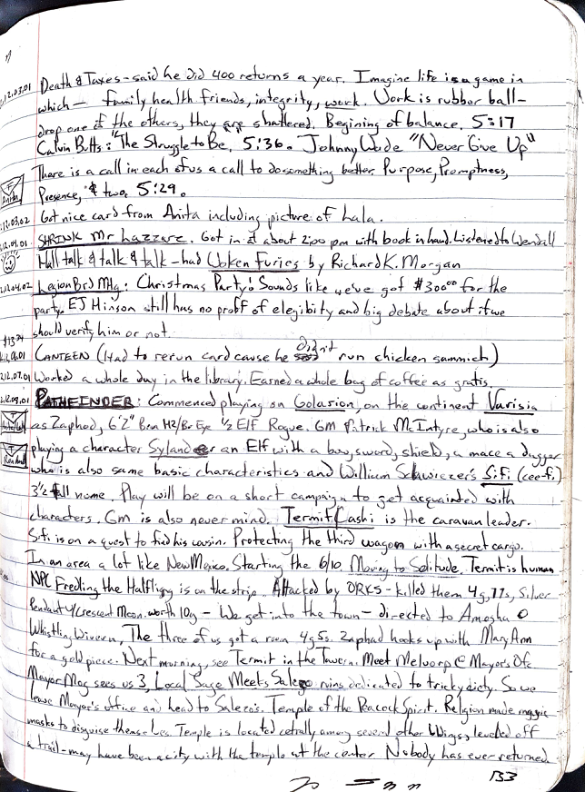 Death & Taxes - said he did 400 returns a year. Imagine life is a game in
which - family health friends, integrity, work. Work is rubber ball -
drop one of the others, they are shattered. Begining of balance. 5:17
Calvin Butts: "The Struggle to Be, 5:36. Johnny Wade "Never Give Up"
There is a call in each of us a call to do something better Purpose, Promptness,
Presence, & two, 5:29.
12.03.02 Got nice card from Anita including picture of Lala.
SHRINK Mr Lazzare. Got in at about 2:00 pm with book in hand. Listened to Wendall
Hall talk & talk & talk - had Woken Furies by Richard K. Morgan
12.04.02 Legion Brd Mtg: Christmas Party! Sounds like we've got $300.00 for the
party. EJ Hinson still has no proff of elegibity and big debate about if we
should verify him or not.
CANTEEN (Had to rerun card cause he didnit run chicken sammich)
12.07.01 Worked a whole day in the library. Earned a whole bag of coffee as gratis.
PATHFINDER: Commenced playing on Golarion, on the continent Varisia
as Zaphod, 6'2" Brn Hr/Br Eye ½ Elf Rogue. GM Patrick McIntyre, who is also
playing a character Sylander an Elf with a bow, sword, shield, a mace a dagger
who is also same basic characteristics and William S.if. (cee-f.)
3'2 full nome. Play will be on a short campaign to get acquainted with
characters. Gm is also never mind. Termit is the caravan leader.
S.f. is on a quest to find his cousin. Protecting the third wagon with a secret cargo.
In an area a lot like New Mexico. Starting the 6/10 Moving to Solitude. Termit is human
NPC Fredling the Halfligy is on the strip. Attacked by ORKS - killed them 4g, 17s, Silver
Pendant w/Crescent Moon. worth 10g - We get into the town - directed to Amosha @
Whistling Wivern, The three of us got a room 4g5s. Zaphod hooks up with Mary Ann
for a gold piece. Next morning, see Termit in the Tavern. Meet @ Mayor's Ofc
Mayor Mog sees us 3, Local Sage Meets ruins dedicated to tricky diety. So we
leave Mayor's office and head to Temple of the Peacock Spirit. Religion made magic
masks to disguise themselves. Temple is located cetrally among several other bldings, leveled off
a trail - may have been a city with the temple at the center Nobody has ever returned.
133